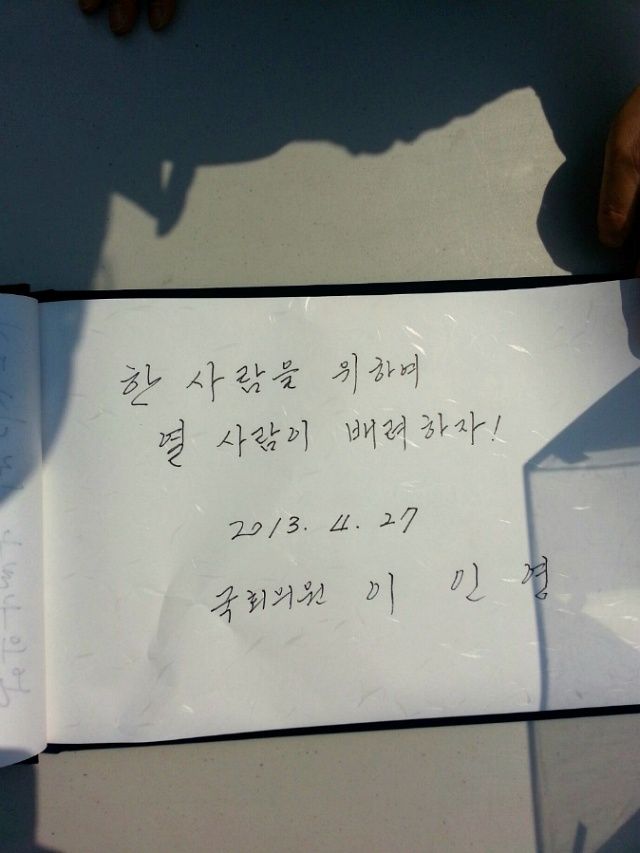 한 사람을 위하여
열 사람이 배려하자!
2013. 4. 27
국회의원 이 인 영